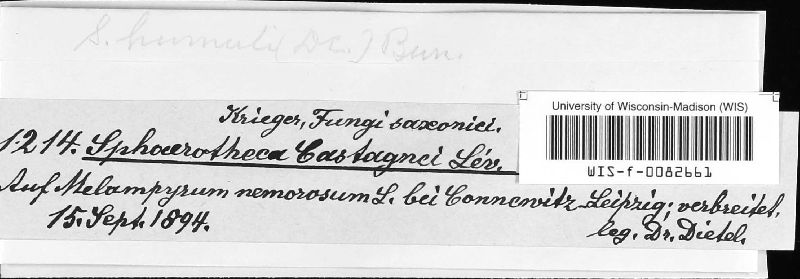 S. humuli (DC.) Burr.
Krieger, Fungi saxonici.
University of Wisconsin-Madison (WIS)
1214. Sphaerotheca Castagnei Lév.
WIS-f-0082661
Auf Melampyrum nemorosum L. bei Connewitz-Leipzig; verbreitet.
15. Sept. 1894.
leg. Dr. Dietel.